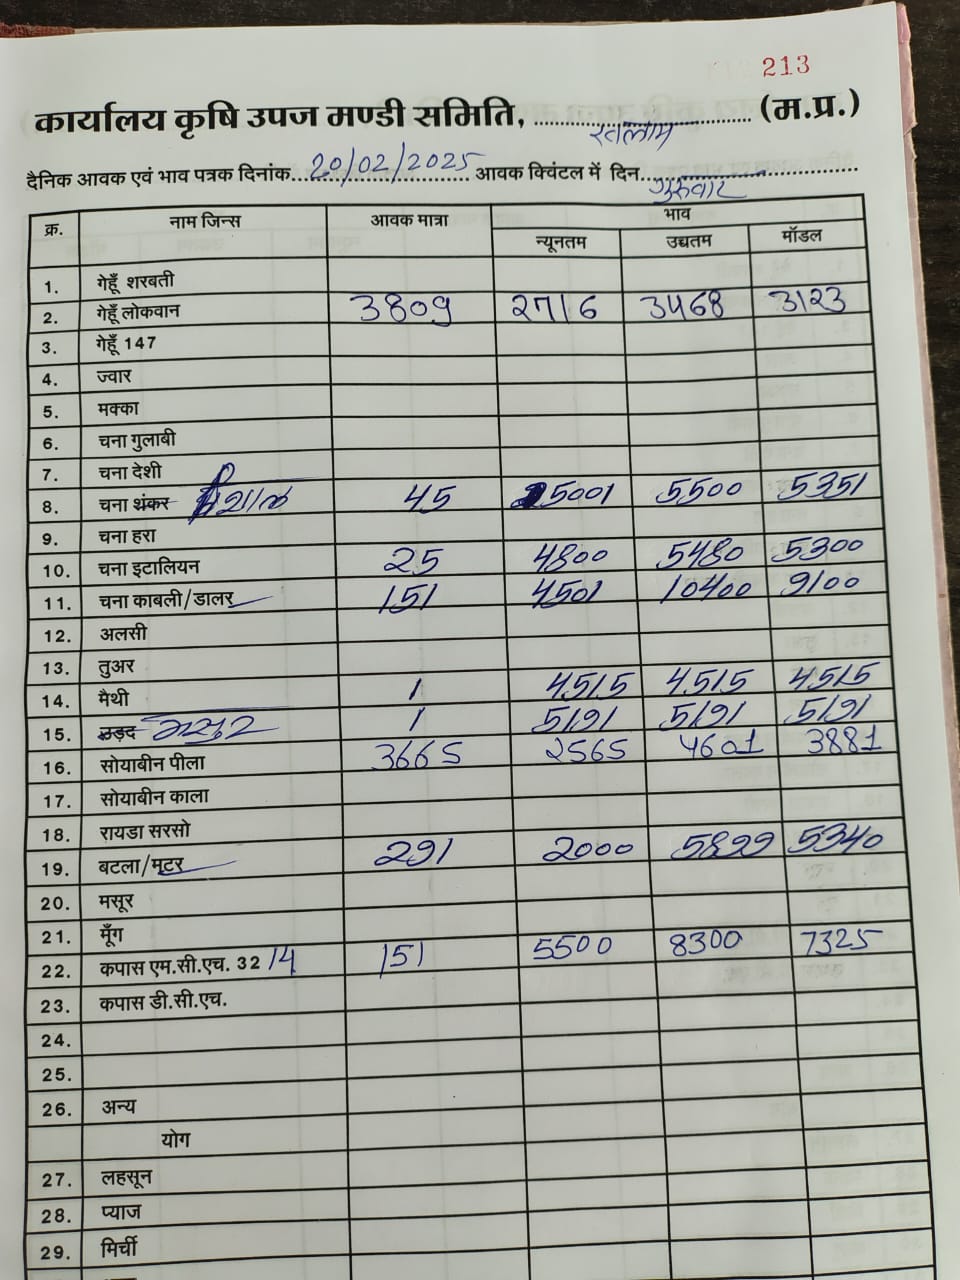 213
कार्यालय कृषि उपज मण्डी समिति, रतलाम (म.प्र.)
दैनिक आवक एवं भाव पत्रक दिनांक 20/02/2025 आवक क्विंटल में दिन गुरुवार
क्र. नाम जिन्स आवक मात्रा भाव
न्यूनतम उद्यतम मॉडल
1. गेहूँ शरबती
2. गेहूँ लोकवान 3809 2716 3468 3123
3. गेहूँ 147
4. ज्वार
5. मक्का
6. चना गुलाबी
7. चना देशी
8. चना शंकर विशाल 45 5001 5500 5351
9. चना हरा
10. चना इटालियन 25 4800 5480 5300
11. चना काबली/डालर 151 4501 10400 9100
12. अलसी
13. तुअर
14. मैथी 1 4515 4515 4515
15. उड़द मसुर 1 5191 5191 5191
16. सोयाबीन पीला 3665 2565 4601 3881
17. सोयाबीन काला
18. रायडा सरसो
19. बटला/मूटर 291 2000 5899 5340
20. मसूर
21. मूँग
22. कपास एम.सी.एच. 32/4 151 5500 8300 7325
23. कपास डी.सी.एच.
24.
25.
26. अन्य
योग
27. लहसून
28. प्याज
29. मिर्ची